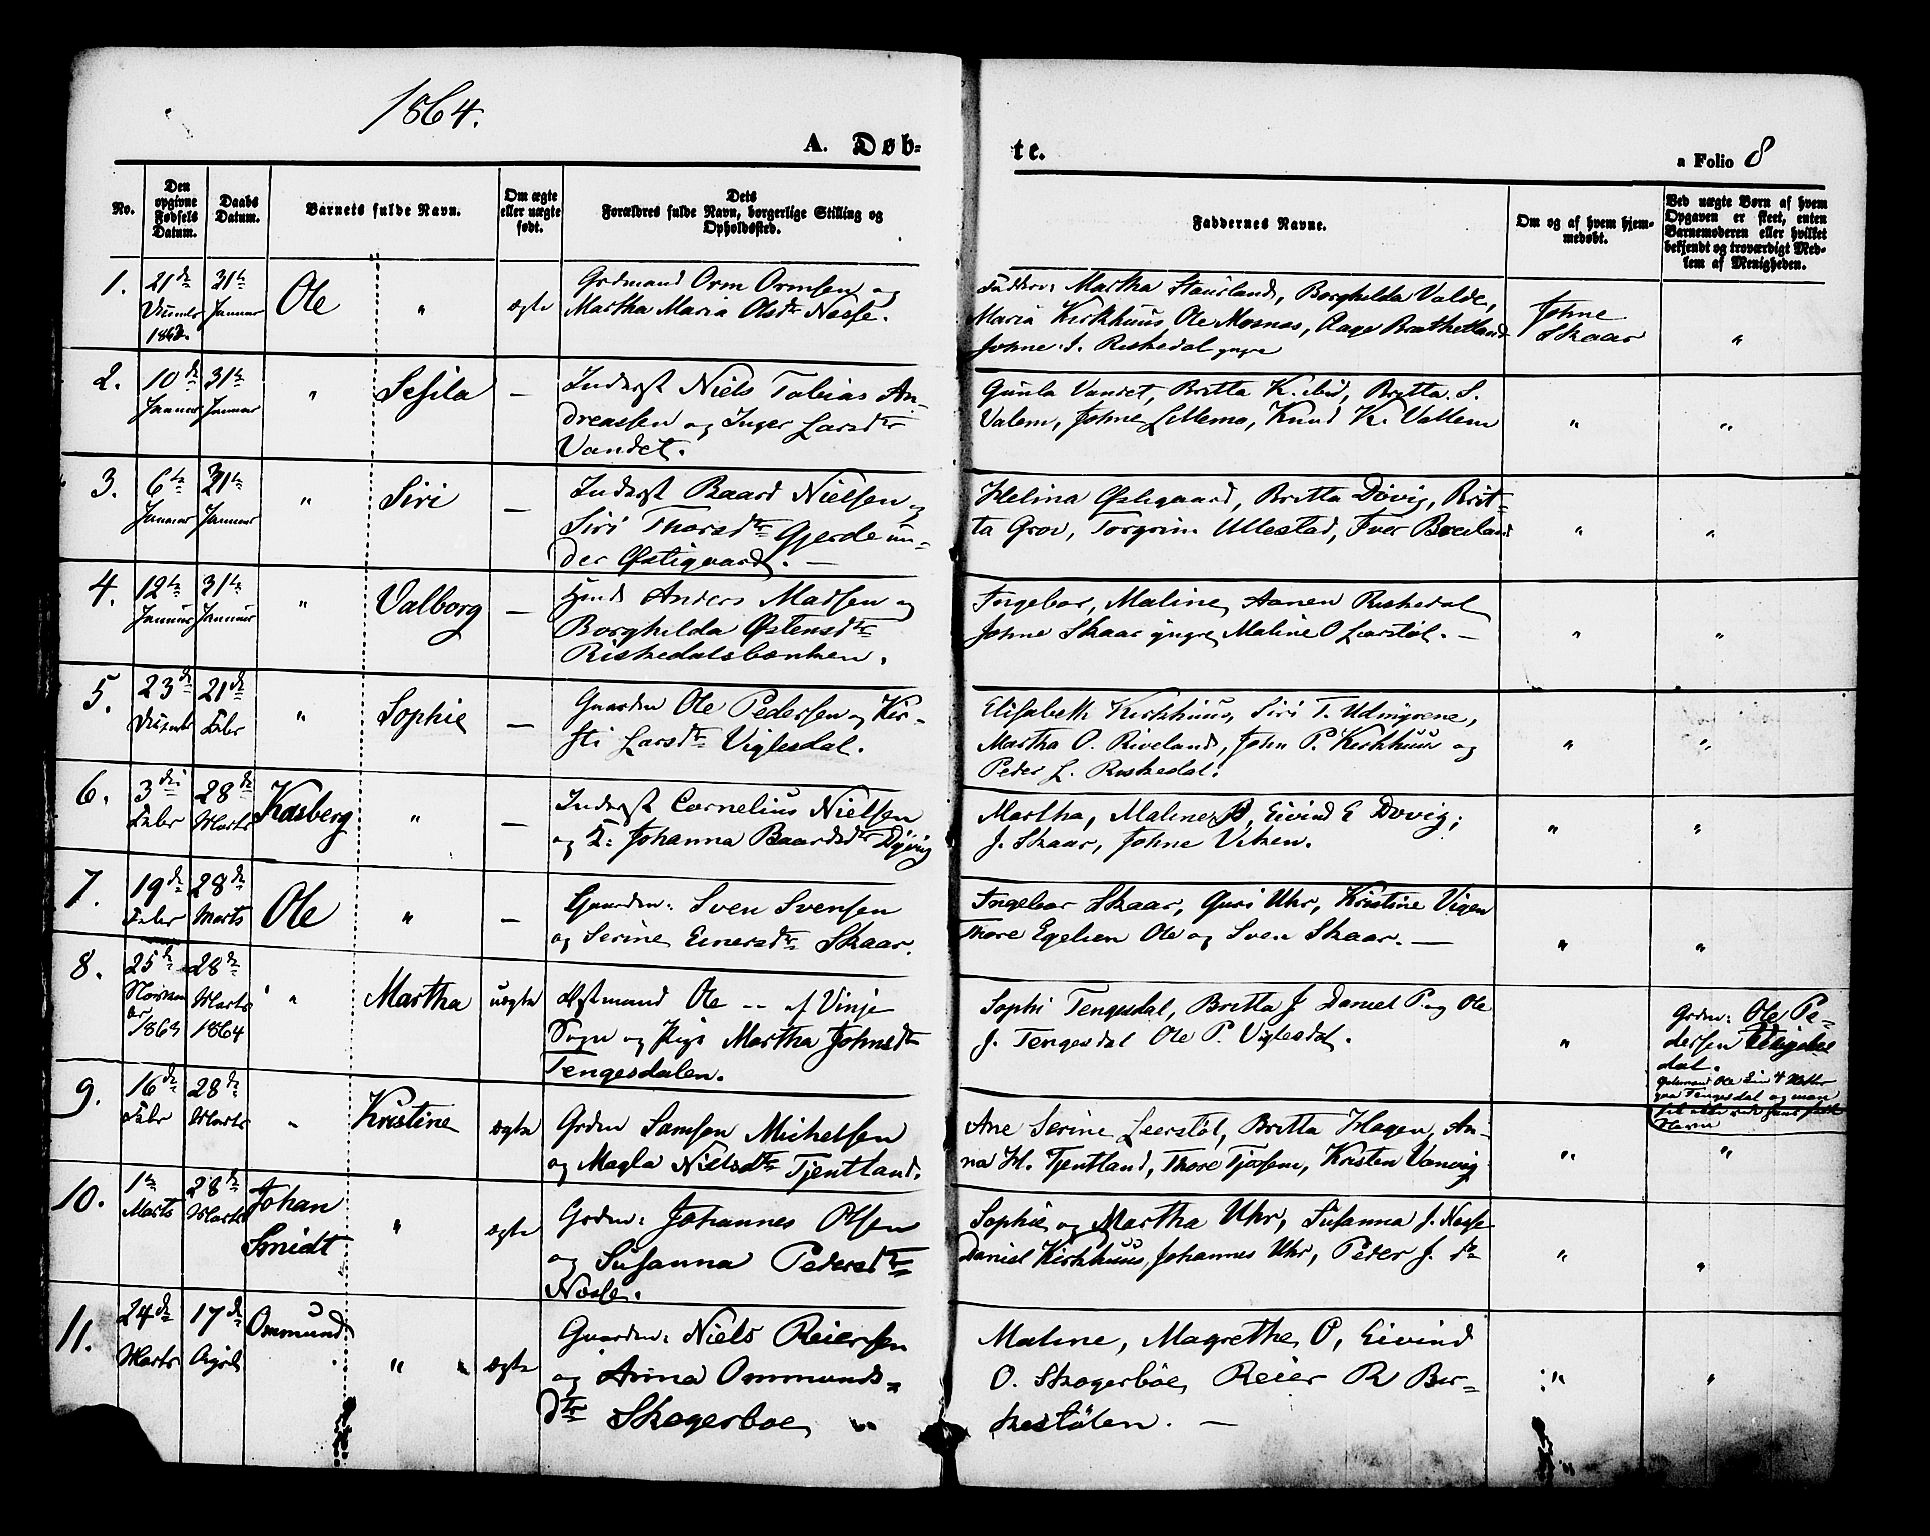 1864.
A. Døb-
te.
a Folio 8
No.
Den opgivne Fødsels Datum.
Daabs Datum.
Barnets fulde Navn.
Om ægte eller uægte født.
Dets Forældres fulde Navn, borgerlige Stilling og Opholdssted.
Faddernes Navne.
Om og af hvem hjem-
medøbt.
Ved uægte Børn af hvem
Opgaven er skeet, enten
Barnemoderen eller hvilket
bekjendt og troværdigt Med-
lem af Menigheden.
1. 21de 31te Januar Ole " ægte
Grdmand Orm Ormsen og
Martha Maria Olsdtr Næsse.
Faddere: Martha Staurland, Borghilda Valde,
Maria Kirkhuus, Ole Mosnæs, Aage Brathetland
Johne I. Riskedal yngre
Johne
Skaar
"
2. 10de Januar 31te Januar " Sesila —
Inderst Niels Tobias An-
dreassen og Inger Larsdtr
Vandet.
Gunla Vandet, Britta, Britta S.
Valem, Johne Lillemo, Knud K. Vallem
" "
3. 6te Januar 31te Januar " Siri —
Inderst Baard Nielsen og
Siri Thorsdtr Gjerde un-
der Østigaard. —
Helina Østigaard, Britta Døvig, Brit-
ta Grov, Torgrim Ullestad, Iver
" "
4. 12te Januar 31te Januar " Valborg —
Anders Madsen og
Borghilda Østensdtr
Riskedalsbakken.
Ingebor, Maline, Aanen Riskedal
Johne Skaar yngre, Maline O Leerstøl. —
" "
5. 23de 21de Febr " Sophie —
Gaardm Ole Pedersen og Kir-
sti Larsdtr Viglesdal.
Elisabeth Kirkhuus, Siri T.
Martha O. Riveland, John P. Kirkhuus og
Peder L. Riskedal.
" "
6. 3die Febr 28de Marts Kasberg " —
Inderst Cornelius Nielsen
og K: Johanna Baardsdtr Døvig
Martha, Maline B, Eivind E Døvig;
J. Skaar, Johne Viken.
" "
7. 19de Febr 28de Marts Ole " —
Gaardm: Sven Svensen
og Serine Einersdtr Skaar.
Ingebor Skaar, Guri Uhr, Kristine Vigen
Thore Egeland Ole og Sven Skaar. —
" "
8. 25de 1863 28de Marts 1864 " Martha uægte
Ole -- af Vinje
Sogn og Pige Martha Johnsdtr
Tengesdalen.
Sophi Tengesdal, Britta J Daniel P. og Ole
J. Tengesdal Ole P. Viglesdal.
"
Grdm: Ole Pe-
dersen
dal.
9. 16de Febr 28de Marts " Kristine ægte
Grdm Samson Michelsen
og Magla Nielsdtr Tjentland.
Ane Serine Leerstøl, Britta Hagen, An-
na H. Tjentland, Thore Tjøsem, Kristen Vanvig
" "
10. 1te Marts 28de Marts Johan
Smidt " ægte
Grdm: Johannes Olsen
og Susanna Pedersdtr
Næsse.
Sophie og Martha Uhr, Susanna J. Næsse
Daniel Kirkhuus, Johannes Uhr, Peder J. do
" "
11. 24de Marts 17de April Ommund " ægte
Gaardm: Niels Reiersen
og Anna Ommunds-
dtr Skogerboe
Maline, Magrethe O, Eivind
O. Skogerboe, Reier R Bir-
kestølen. —
" "